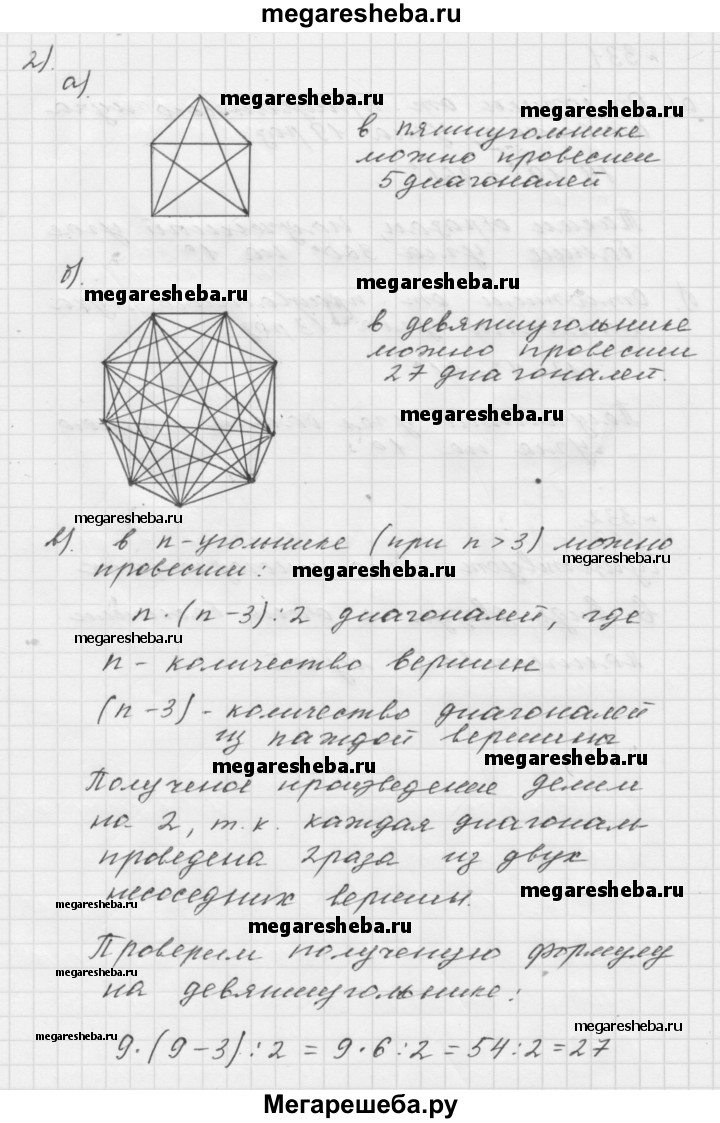 megaresheba.ru
2).
а).
megaresheba.ru
megaresheba.ru
в пятиугольнике
можно провести
5 диагоналей
б).
megaresheba.ru
megaresheba.ru
в девятиугольнике
можно провести
27 диагоналей.
megaresheba.ru
megaresheba.ru
в). в n-угольнике (при n > 3) можно
megaresheba.ru
провести:
megaresheba.ru
n·(n-3):2 диагоналей, где
megaresheba.ru
n - количество вершин
(n-3) - количество диагоналей
из каждой вершины
megaresheba.ru
megaresheba.ru
Полученое произведение делим
на 2, т.к. каждая диагональ
проведена 2 раза из двух
несоседних вершин.
megaresheba.ru
megaresheba.ru
megaresheba.ru
Проверим полученую формулу
megaresheba.ru
на девятиугольнике:
megaresheba.ru
megaresheba.ru
9·(9-3):2 = 9·6:2 = 54:2 = 27
Мегарешеба.ру